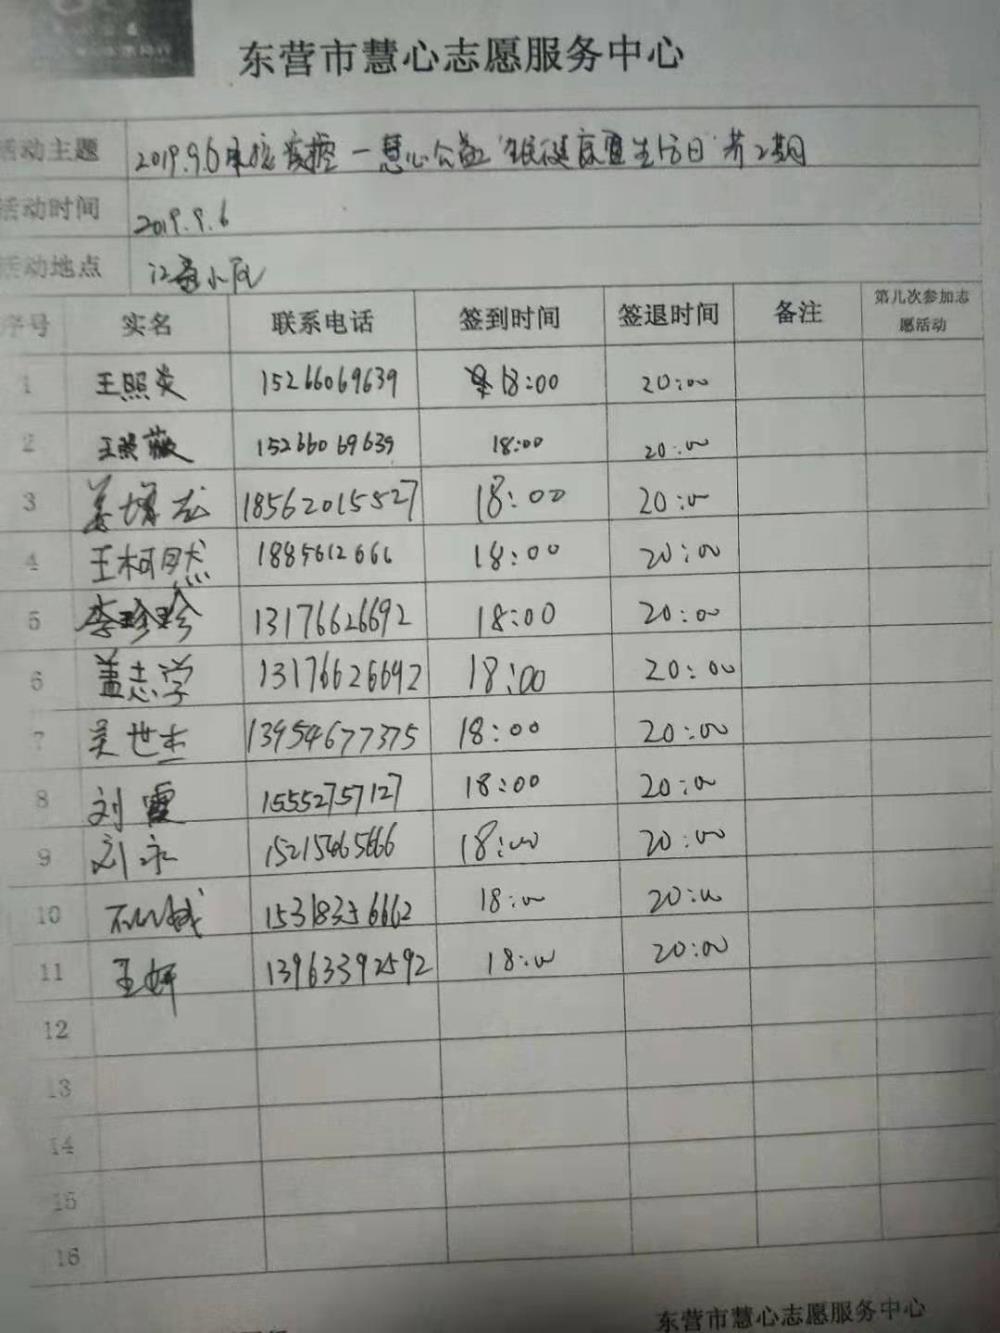 东营市慧心志愿服务中心
活动主题 2019.9.6 疾控一慧心公益"健康 生活日"第2期
活动时间 2019.9.6
活动地点 小区
序号 实名 联系电话 签到时间 签退时间 备注 第几次参加志愿活动
1 王照炎 15266069639 18:00 20:00
2 王照薇 15266069639 18:00 20:00
3 姜增龙 18562015527 18:00 20:00
4 王柯然 1885612666 18:00 20:00
5 李珍珍 13176626692 18:00 20:00
6 盖志学 13176626692 18:00 20:00
7 吴世杰 13954677375 18:00 20:00
8 刘霞 15552757127 18:00 20:00
9 刘永 18:00 20:00
10 18:00 20:00
11 王妍 13963392592 18:00 20:00
12
13
14
15
16
东营市慧心志愿服务中心